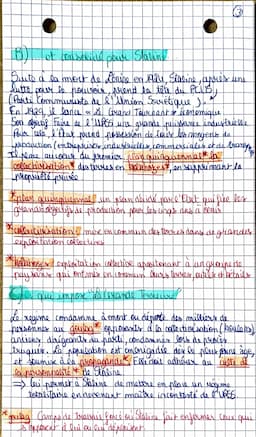 ③
B) et consolidé par Staline
Suite à la mort de Lénine en 1924, Staline, après une
lutte pour le pouvoir, prend la tête du PCUS
(Parti Communiste de l'Union Soviétique).
En 1929, il lance "Grand Tournant" économique
Son objectif faire de l'URSS une grande puissance industrielle
Pour cela, l'État prend possession de tous les moyens de
production (entreprises industrielles, commerciales et de transp
et même au cours du premier plan quinquennal* la
collectivisation* des terres en kolkhozes*, en supprimant la
propriété privée
*plan quinquennal: un plan élaboré par l'État qui fixe les
grands objectifs de production pour les cinq ans à venir
*collectivisation: mise en commun des terres dans de grandes
exploitations collectives
*kolkhozes: exploitation collective appartenant à un groupe de
paysans qui ont mis en commun leurs terres, outils et bétail
C) qui impose "la Grande Terreur"
Le régime condamne à mort ou déporte des milliers de
personnes au goulag* opposants à la collectivisation (koulaks),
anciens dirigeants du parti, condamnés lors de procès
truqués. La population est embrigadée dès le plus jeune âge,
et soumise à la propagande* Elle doit adhérer au culte de
la personnalité* de Staline.
⇒ lui permet à Staline de mettre en place un régime
totalitaire en devenant maître incontesté de l'URSS.
*goulag Camps de travaux forcés où Staline fait enfermer ceux qui
s'opposent à lui ou qui dérangent